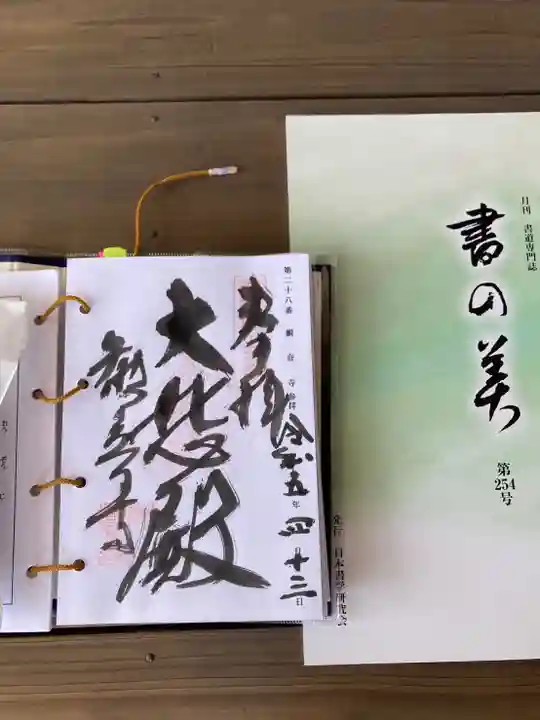 月刊 書道専門誌
書の美
第
254
号
発行 日本書学研究会
第二十八番 観音寺参拝
奉拝
令和五年四月十三日
大悲殿
観音寺